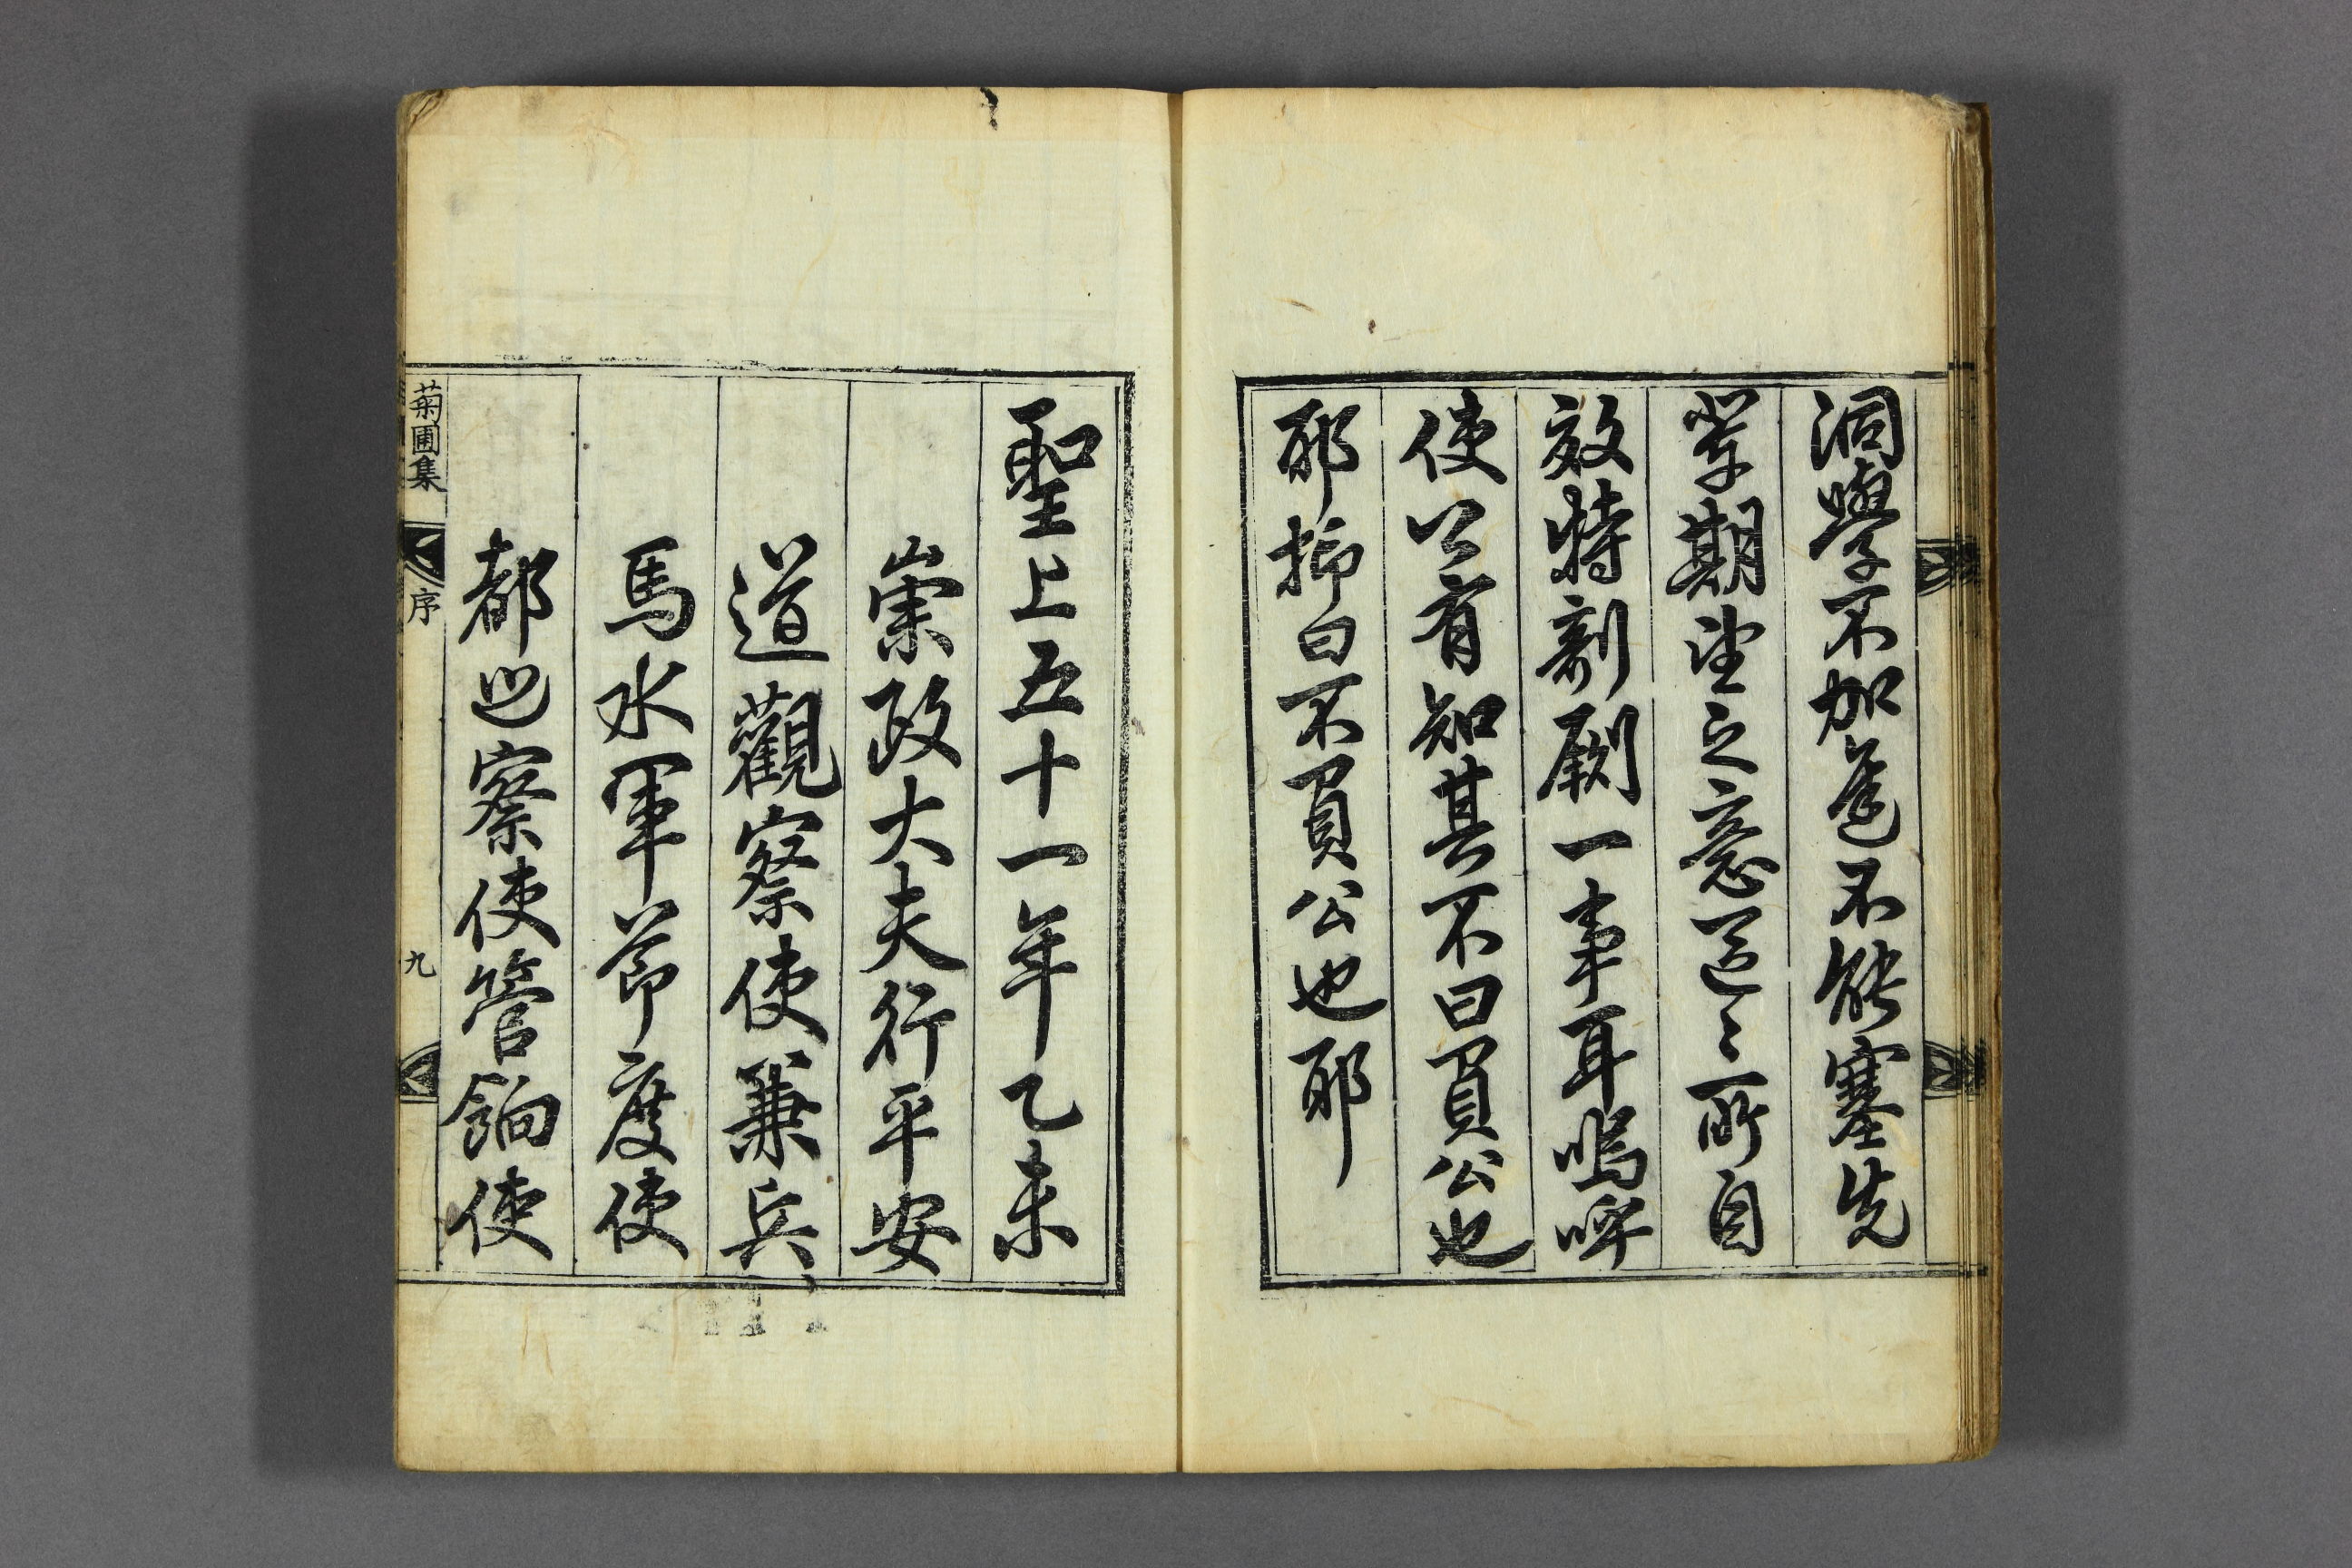 洞學不加進不能塞先
期望之意區〻所自
效特剞劂一事耳嗚呼
使公有知其不曰負公也
耶抑曰不負公也耶
聖上五十一年乙未
崇政大夫行平安
道觀察使兼兵
馬水軍節度使
都巡察使管餉使
菊圃集 序 九